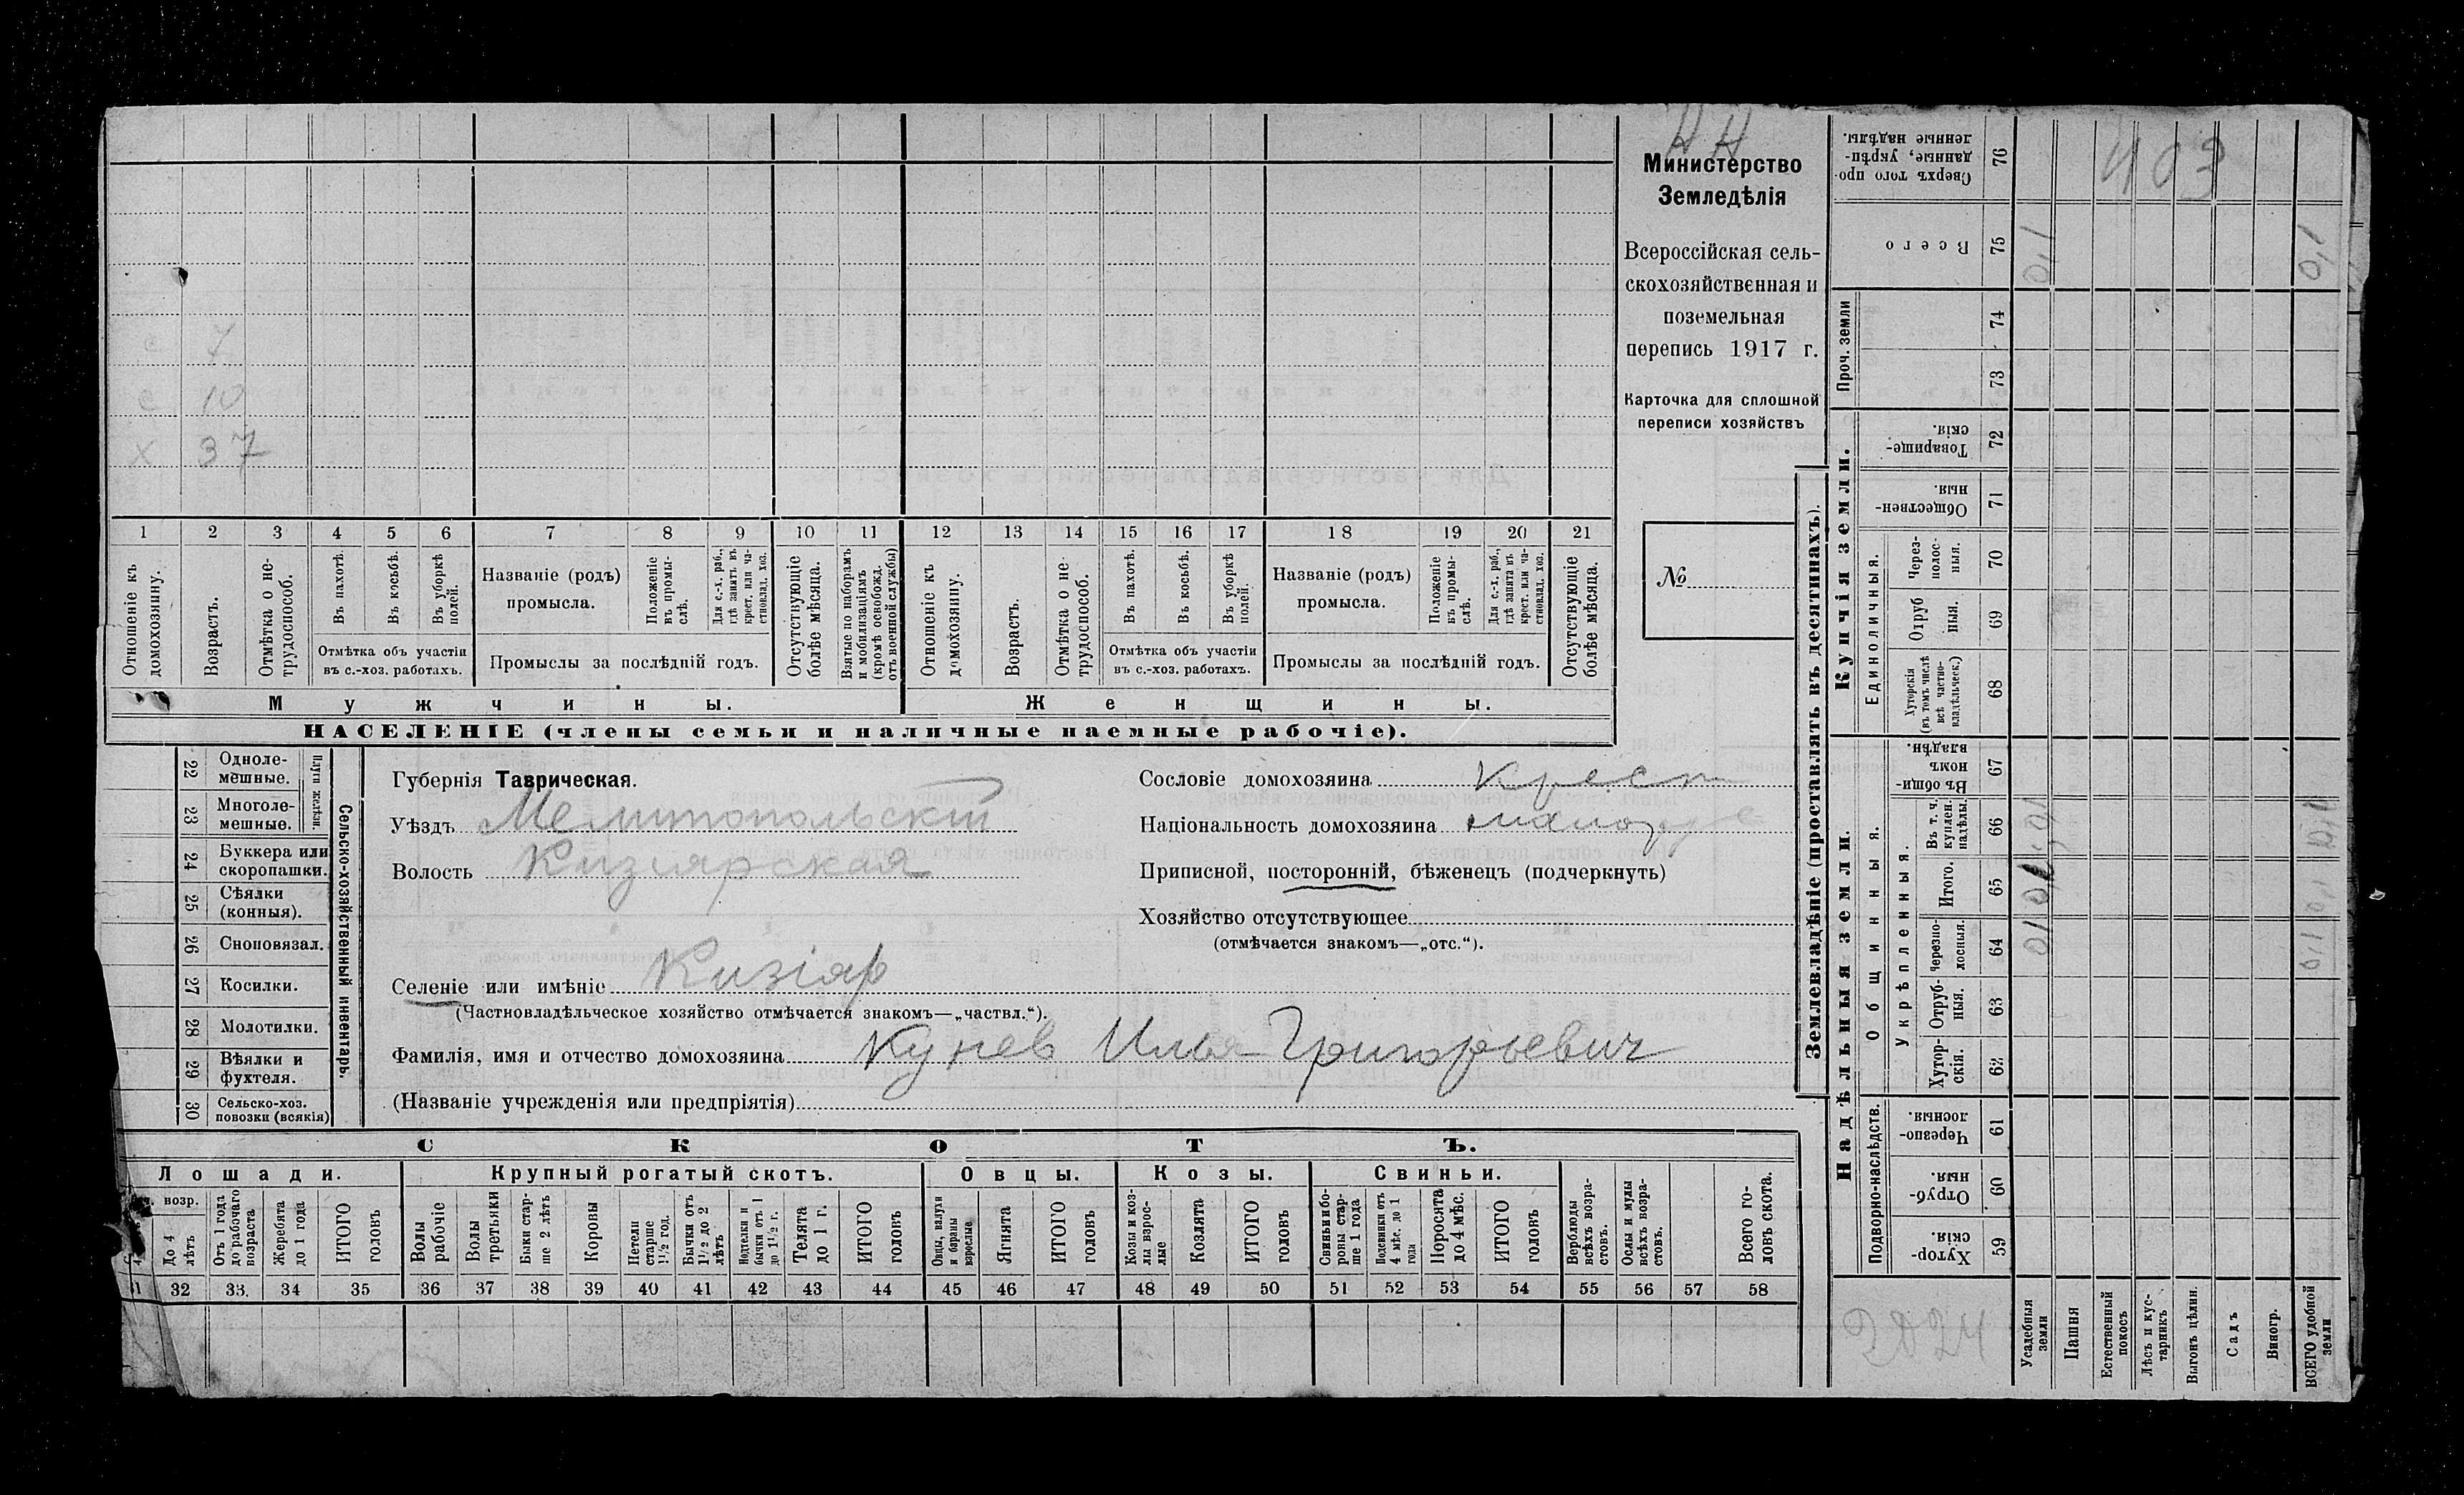 Н Н
Министерство
Земледѣлія
Всероссійская сель-
скохозяйственная и
поземельная
перепись 1917 г.
Карточка для сплошной
переписи хозяйствъ
№
с 7
с 10
х 37
1 2 3 4 5 6 7 8 9 10 11 12 13 14 15 16 17 18 19 20 21
Отношеніе къ домохозяину.
Возрастъ.
Отмѣтка о не-трудоспособ.
Въ пахотѣ.
Въ косьбѣ.
Въ уборкѣ полей.
Отмѣтка объ участіи
въ с.-хоз. работахъ.
Названіе (родъ)
промысла.
Положеніе въ промы-слѣ.
Для с.-х. раб., гдѣ занятъ въ крест. или ча-стновлад. хоз.
Промыслы за послѣдній годъ.
Отсутствующіе болѣе мѣсяца.
Взятые по наборамъ и мобилизаціямъ (кромѣ освобожд. отъ военной службы)
Отношеніе къ домохозяину.
Возрастъ.
Отмѣтка о не-трудоспособ.
Въ пахотѣ.
Въ косьбѣ.
Въ уборкѣ полей.
Отмѣтка объ участіи
въ с.-хоз. работахъ.
Названіе (родъ)
промысла.
Положеніе въ промы-слѣ.
Для с.-х. раб., гдѣ занята въ крест. или ча-стновлад. хоз.
Промыслы за послѣдній годъ.
Отсутствующіе болѣе мѣсяца.
Мужчины. Женщины.
НАСЕЛЕНІЕ (члены семьи и наличные наемные рабочіе).
22 Одноле-мешные.
23 Многоле-мешные.
Плуги желѣзн.
24 Буккера или скоропашки.
25 Сѣялки (конныя).
26 Сноповязал.
27 Косилки.
28 Молотилки.
29 Вѣялки и фухтеля.
30 Сельско-хоз. повозки (всякія)
Сельско-хозяйственный инвентарь.
Губернія Таврическая.
Уѣздъ Мелитопольскій
Волость Кизиярская
Селеніе или имѣніе Кизіяр
(Частновладѣльческое хозяйство отмѣчается знакомъ—„частвл.“).
Фамилія, имя и отчество домохозяина Кунев Илья Григорьевич
(Названіе учрежденія или предпріятія)
Сословіе домохозяина Крест
Національность домохозяина
Приписной, посторонній, бѣженецъ (подчеркнуть)
Хозяйство отсутствующее
(отмѣчается знакомъ—„отс.“).
СКОТЪ.
Лошади. Крупный рогатый скотъ. Овцы. Козы. Свиньи.
возр.
До 4 лѣтъ
Отъ 1 года до рабочаго возраста
Жеребята до 1 года
ИТОГО головъ
Волы рабочіе
Волы третьяки
Быки стар-ше 2 лѣтъ
Коровы
Нетели старше 1½ год.
Бычки отъ 1½ до 2 лѣтъ
Нодтелки и бычки отъ 1 до 1½ г.
Телята до 1 г.
ИТОГО головъ
Овцы, валухи и бараны взрослые
Ягнята
ИТОГО головъ
Козы и коз-лы взрос-лые
Козлята
ИТОГО головъ
Свиньи и бо-ровы стар-ше 1 года
Подсвинки отъ 4 мѣс. до 1 года
Поросята до 4 мѣс.
ИТОГО головъ
Верблюды всѣхъ возра-стовъ.
Ослы и мулы всѣхъ возра-стовъ.
Всего го-ловъ скота.
32 33. 34 35 36 37 38 39 40 41 42 43 44 45 46 47 48 49 50 51 52 53 54 55 56 57 58
Землевладѣніе (проставлять въ десятинахъ).
Купчія земли.
Надѣльныя земли.
Сверхъ того про-данные, укрѣп-ленные надѣлы. 76
403
Всего 75 0,1 0,1
Проч. земли 74 73
Товарище-скія. 72
Обществен-ныя. 71
Единоличныя.
Через-полос-ныя. 70
Отруб ныя. 69
Хуторскія (въ томъ числѣ всѣ частно-владѣльческ.) 68
Общинныя.
Въ общи-номъ владѣн. 67
Укрѣпленныя.
Въ т. ч. куплен. надѣлы. 66 0,1 0,1
Итого. 65 0,1 0,1
Черезпо-лосныя. 64 0,1 0,1
Отруб-ныя. 63
Хутор-скія. 62
Подворно-наслѣдств.
Черезпо-лосныя. 61
Отруб-ныя. 60
Хутор-скія. 59
Усадебныя земли
Пашня
Естественный покосъ
Лѣсъ и кус-тарникъ
Выгонъ цѣлин.
Садъ
Виногр.
ВСЕГО удобной земли